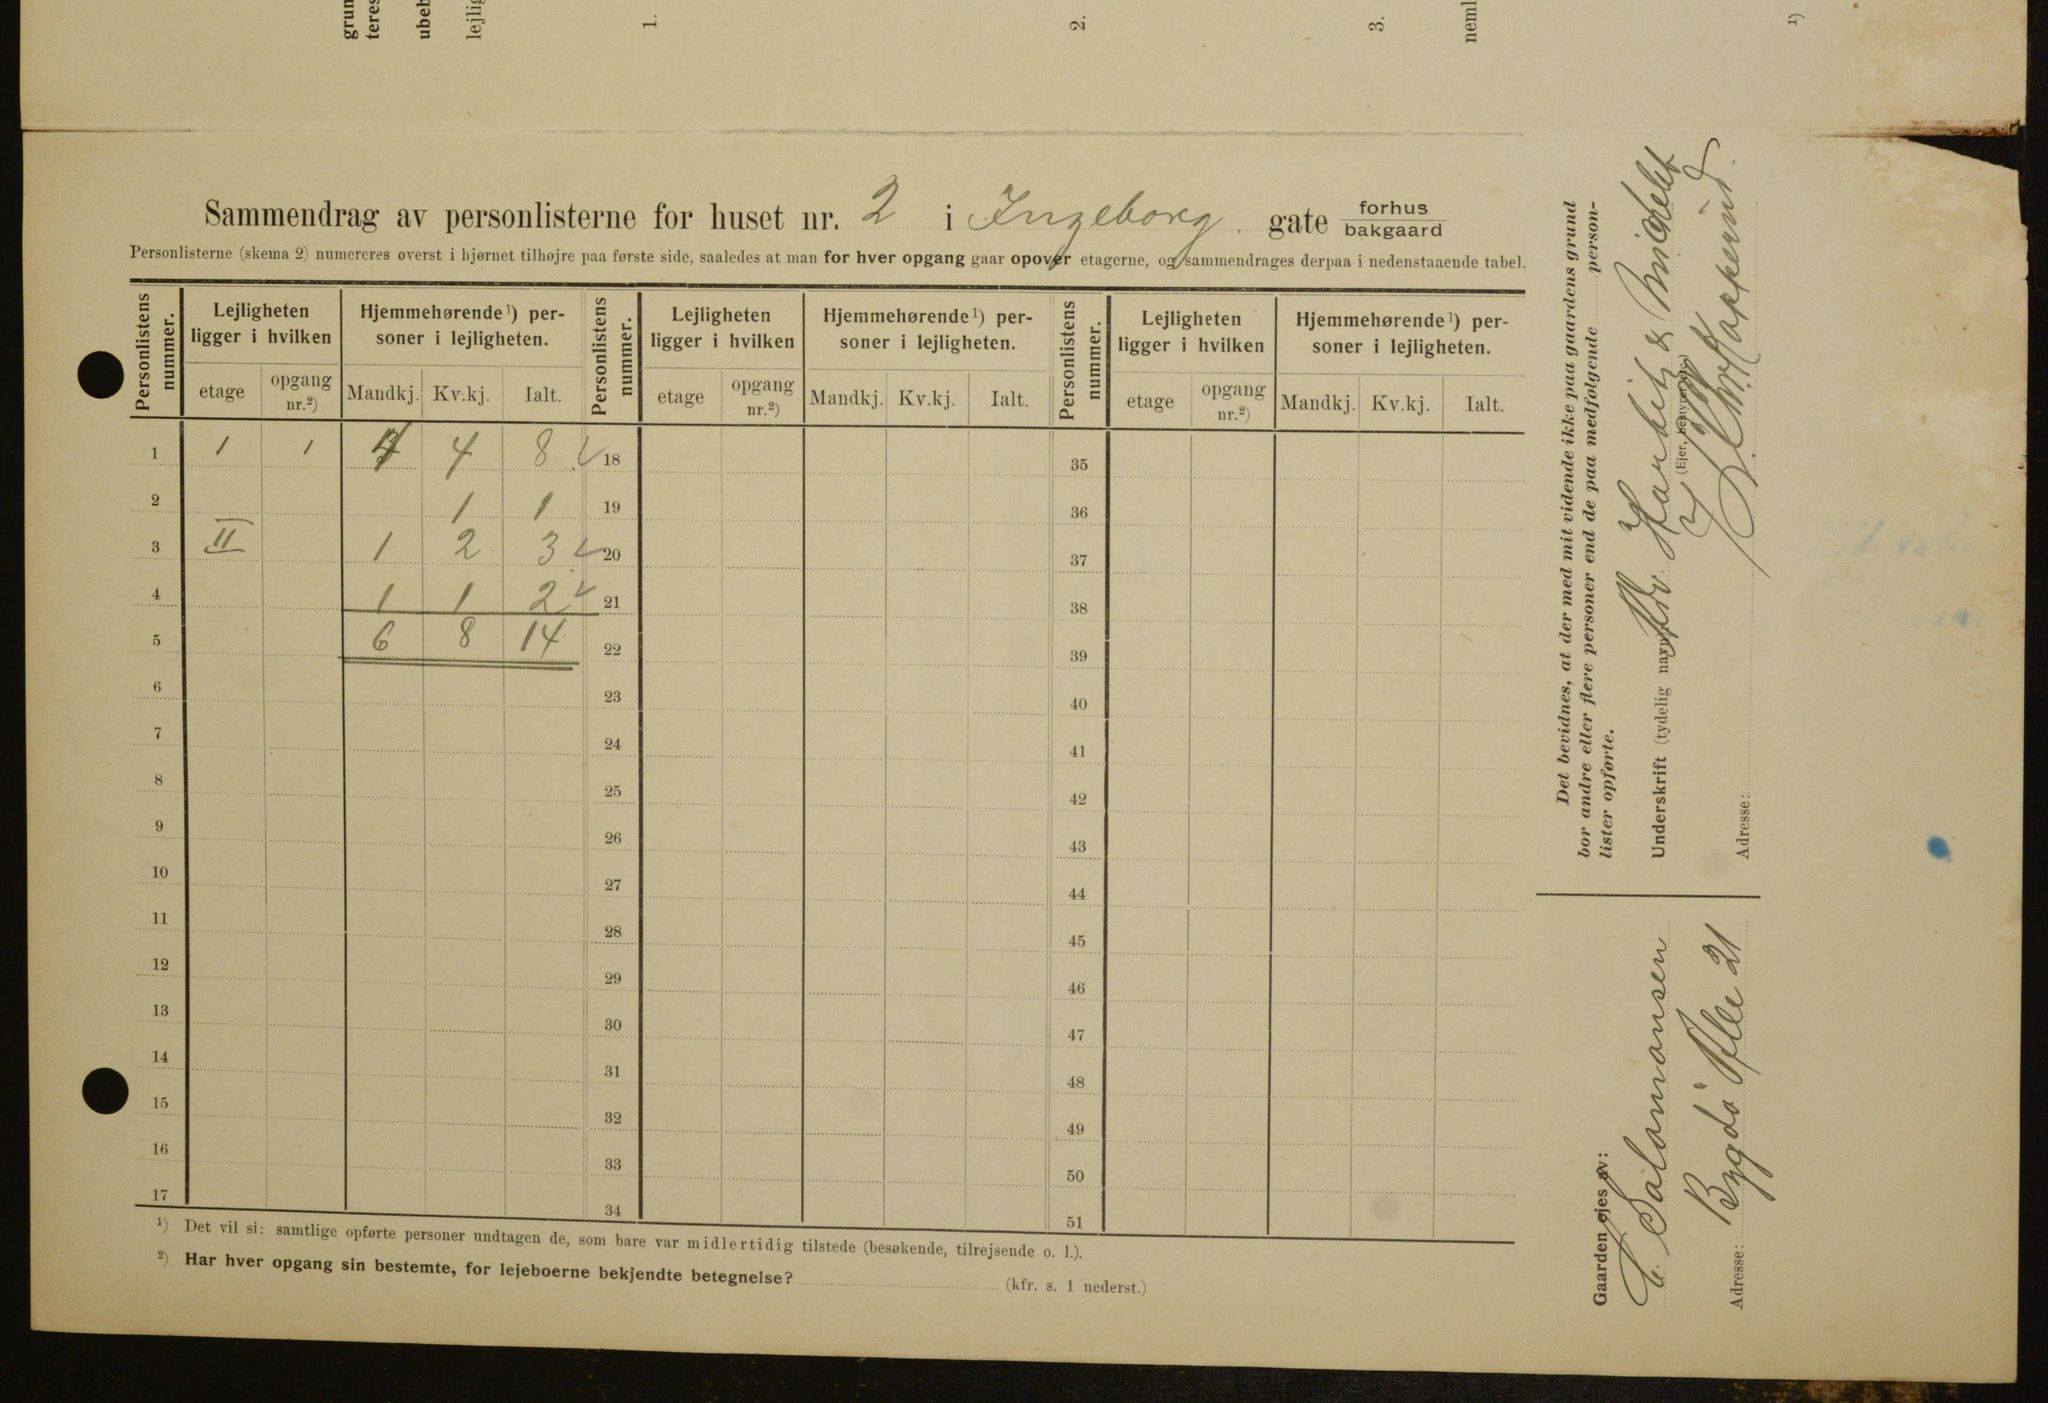 grun
teres
ubeb
lejlig
1.
2.
3.
neml
1)
Sammendrag av personlisterne for huset nr. 2 i Ingeborg gate forhus bakgaard
Personlisterne (skema 2) numereres øverst i hjørnet tilhøjre paa første side, saaledes at man for hver opgang gaar opover etagerne, og sammendrages derpaa i nedenstaaende tabel.
Personlistens nummer. | Lejligheten ligger i hvilken | Hjemmehørende 1) personer i lejligheten. | Personlistens nummer. | Lejligheten ligger i hvilken | Hjemmehørende 1) personer i lejligheten. | Personlistens nummer. | Lejligheten ligger i hvilken | Hjemmehørende 1) personer i lejligheten.
etage | opgang nr.2) | Mandkj. | Kv.kj. | Ialt. | etage | opgang nr.2) | Mandkj. | Kv.kj. | Ialt. | etage | opgang nr.2) | Mandkj. | Kv.kj. | Ialt.
1 1 1 4 4 8 18 35
2 1 1 19 36
3 II 1 2 3 20 37
4 1 1 2 21 38
5 6 8 14 22 39
6 23 40
7 24 41
8 25 42
9 26 43
10 27 44
11 28 45
12 29 46
13 30 47
14 31 48
15 32 49
16 33 50
17 34 51
1) Det vil si: samtlige opførte personer undtagen de, som bare var midlertidig tilstede (besøkende, tilrejsende o. l.).
2) Har hver opgang sin bestemte, for lejeboerne bekjendte betegnelse? (kfr. s. 1 nederst.)
Det bevidnes, at der med mit vidende ikke paa gaardens grund
bor andre eller flere personer end de paa medfølgende person-
lister opførte.
Underskrift (tydelig navn):
(Ejer, bestyrer etc.)
Adresse:
Gaarden ejes av:
C. Salomonsen
Adresse: Bygdö Alle 21